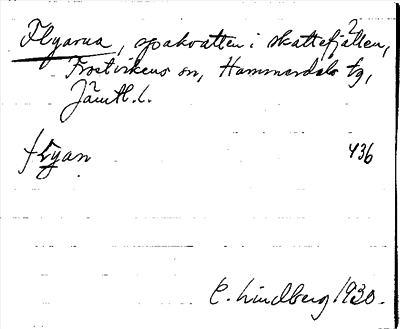 Flyarna, spakvatten i skattefjällen,
Frostvikens sn, Hammerdals tg,
Jämtl. l.
flyan 436
C. Lindberg 1930.